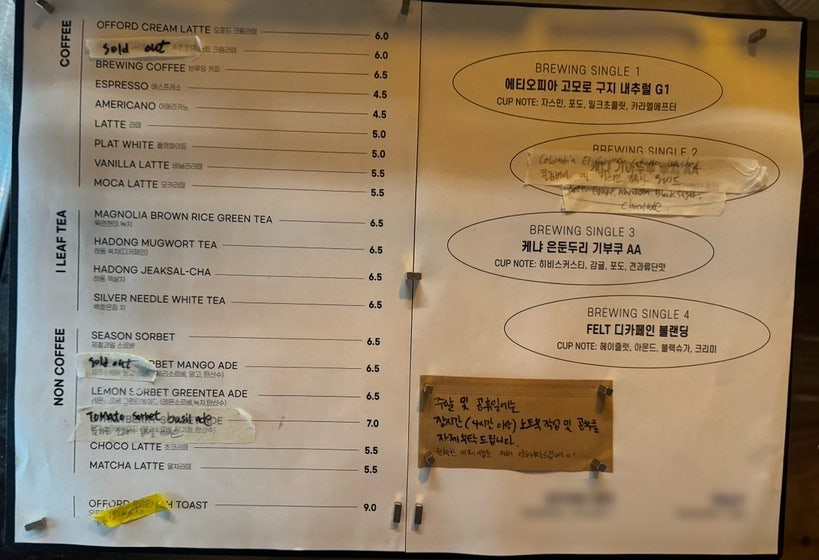 COFFEE
OFFORD CREAM LATTE 오포드 크림라떼 6.0
sold out 크림라떼 6.0
BREWING COFFEE 브루잉 커피 6.5
ESPRESSO 에스프레소 4.5
AMERICANO 아메리카노 4.5
LATTE 라떼 5.0
PLAT WHITE 플랫화이트 5.0
VANILLA LATTE 바닐라라떼 5.5
MOCA LATTE 모카라떼 5.5
I LEAF TEA
MAGNOLIA BROWN RICE GREEN TEA 6.5
목련현미 녹차
HADONG MUGWORT TEA 6.5
하동 쑥차(디카페인)
HADONG JEAKSAL-CHA 6.5
하동 잭살차
SILVER NEEDLE WHITE TEA 6.5
백호은침 차
NON COFFEE
SEASON SORBET 6.5
제철과일 소르베
sold out RBET MANGO ADE 6.5
LEMON SORBET GREENTEA ADE 6.5
Tomato sorbet basil ade 7.0
CHOCO LATTE 초코라떼 5.5
MATCHA LATTE 말차라떼 5.5
OFFORD H TOAST 9.0
BREWING SINGLE 1
에티오피아 고모로 구지 내추럴 G1
CUP NOTE: 자스민, 포도, 밀크초콜릿, 카라멜에프터
BREWING SINGLE 2
Columbia El
Chocolate
BREWING SINGLE 3
케냐 은둔두리 기부쿠 AA
CUP NOTE: 히비스커스티, 감귤, 포도, 견과류단맛
BREWING SINGLE 4
FELT 디카페인 블랜딩
CUP NOTE: 헤이즐럿, 아몬드, 블랙슈가, 크리미
주말 및 공휴일에는
장시간 (4시간 이상) 노트북 작업 및 공부를
자제 부탁드립니다.